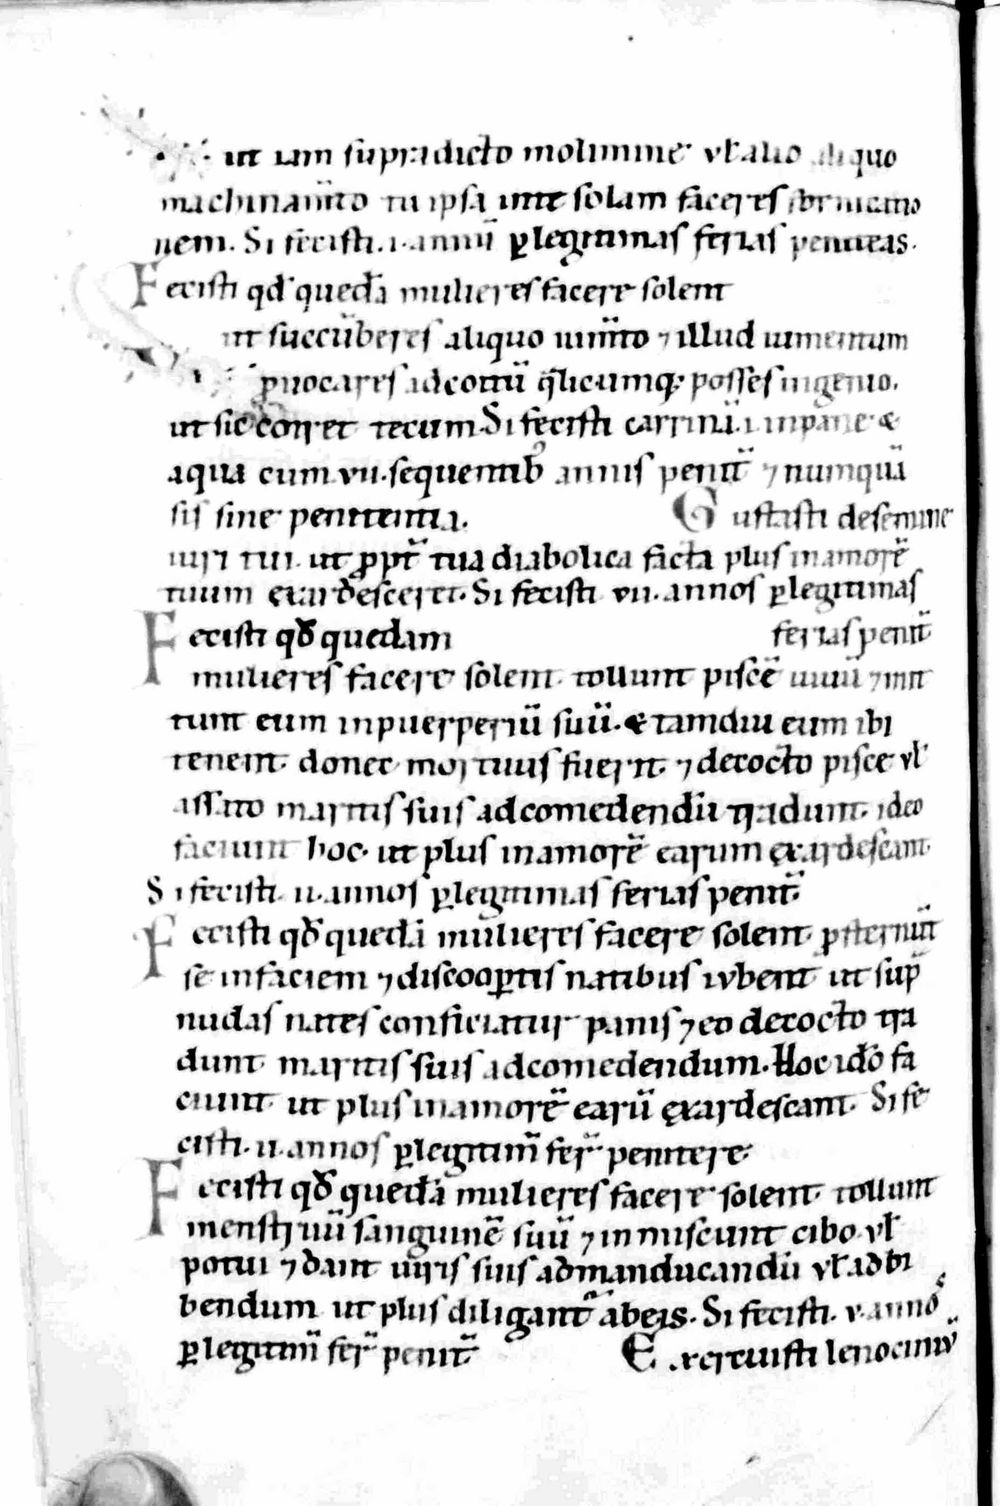 ut iam supradicto molimine vł alio aliquo
machinam̄to tu ipsa inte solam faceres fornicatio
nem. Si fecisti .i. annū ꝑ legitimas ferias peniteas.
Fecisti qd̄ quedā mulieres facere solent
ut succūberes aliquo ium̄to ⁊ illud iumentum
ꝓuocares ad coitū q̄licumq; posses ingenio.
ut sic coiret tecum. Si fecisti carrinā .i. in pane &
aqua cum .vii. sequentib; annis penit̄ ⁊ numquā
sis sine penitentia. Gustasti de semine
uiri tui. ut ꝓpt̄ tua diabolica facta plus in amorē
tuum exardesceret. Si fecisti .vii. annos ꝑ legitimas
ferias penit̄
Fecisti qd̄ quedam
mulieres facere solent. tollunt piscē uiuū ⁊ mit
tunt eum in puerperiū suū. & tamdiu eum ibi
tenent. donec mortuus fuerit. ⁊ decocto pisce vł
assato maritis suis ad comedendū tradunt. ideo
faciunt hoc. ut plus in amorē earum exardescant.
Si fecisti .ii. annos ꝑ legitimas ferias penit̄.
Fecisti qd̄ quedā mulieres facere solent. ꝓsternūt
se in faciem ⁊ discooꝑtis natibus iubent ut sup̄
nudas nates conficiatur panis ⁊ eo decocto tra
dunt maritis suis ad comedendum. Hoc id̄o fa
ciunt. ut plus in amorē earū exardescant. Si fe
cisti .ii. annos ꝑ legitim̄ fer̄ penitere.
Fecisti qd̄ quedā mulieres facere solent. tollunt
menstruū sanguinē suū ⁊ inmiscunt cibo vł
potui ⁊ dant uiris suis ad manducandū vł ad bi
bendum ut plus diligant̄ ab eis. Si fecisti .v. annos
ꝑ legitim̄ fer̄ penit̄ Exercuisti lenociniū